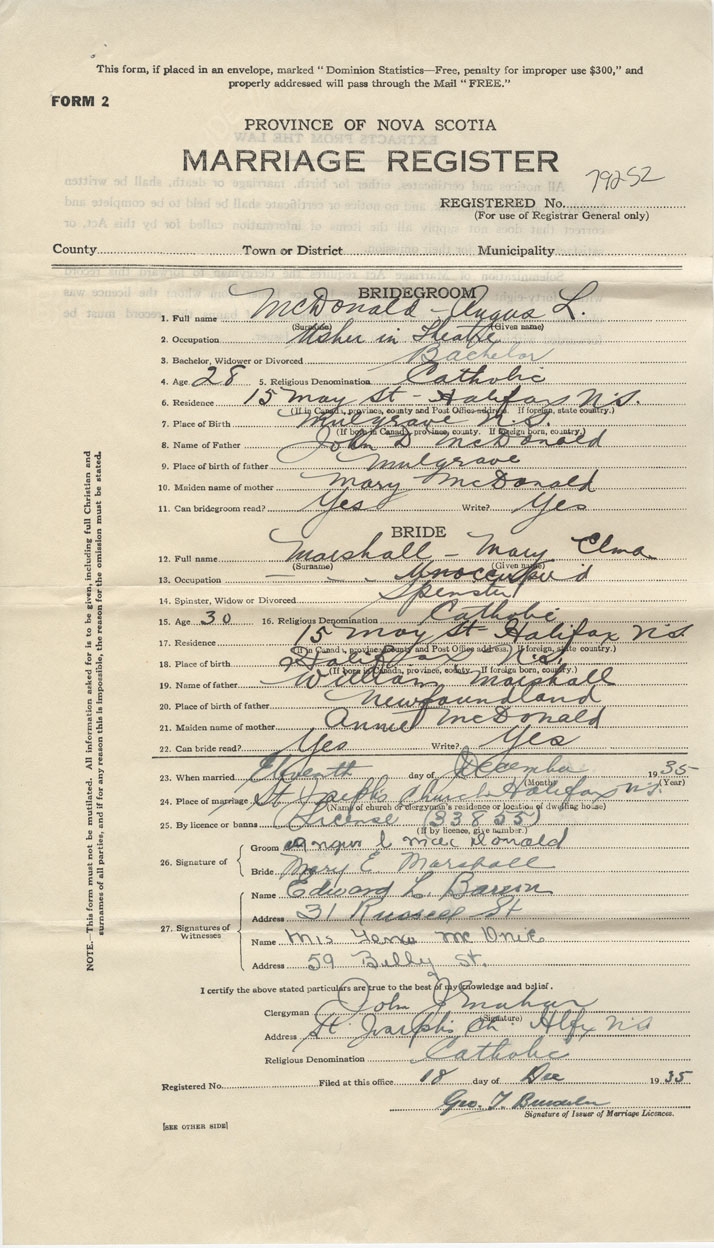 This form, if placed in an envelope, marked "Dominion Statistics—Free, penalty for improper use $300," and
properly addressed will pass through the Mail "FREE."
FORM 2
PROVINCE OF NOVA SCOTIA
MARRIAGE REGISTER
79252
REGISTERED No.
(For use of Registrar General only)
County Town or District Municipality
BRIDEGROOM
1. Full name McDonald - Angus L.
(Surname) (Given name)
2. Occupation Usher in Theatre
3. Bachelor, Widower or Divorced Bachelor
4. Age 28 5. Religious Denomination Catholic
6. Residence 15 May St - Halifax N.S.
(If in Canada, province, county and Post Office address. If foreign, state country.)
7. Place of Birth Mulgrave N.S.
(If born in Canada, province, county. If foreign born, country.)
8. Name of Father John D McDonald
9. Place of birth of father Mulgrave
10. Maiden name of mother Mary McDonald
11. Can bridegroom read? Yes Write? Yes
BRIDE
12. Full name Marshall - Mary Elma
(Surname) (Given name)
13. Occupation Unoccupied
14. Spinster, Widow or Divorced Spinster
15. Age 30 16. Religious Denomination Catholic
17. Residence 15 May St - Halifax N.S.
(If in Canada, province, county and Post Office address. If foreign, state country.)
18. Place of birth Halifax N.S.
(If born in Canada, province, county. If foreign born, country.)
19. Name of father William Marshall
20. Place of birth of father Newfoundland
21. Maiden name of mother Annie McDonald
22. Can bride read? Yes Write? Yes
23. When married Eleventh day of December 1935
(Month) (Year)
24. Place of marriage St Joseph's Church Halifax N.S.
(Name of church or clergyman's residence or location of dwelling house)
25. By licence or banns License (33855)
(If by licence, give number.)
26. Signature of
Groom Angus L MacDonald
Bride Mary E Marshall
27. Signatures of
Witnesses
Name Edward L.
Address 31 Russell St
Name Mrs
Address 59 St.
I certify the above stated particulars are true to the best of my knowledge and belief.
Clergyman John J
(Signature)
Address St Joseph's Ch. Hlfx N.S
Religious Denomination Catholic
Registered No. Filed at this office 18 day of Dec 1935
Geo. T.
Signature of Issuer of Marriage Licences.
[SEE OTHER SIDE]
NOTE.—This form must not be mutilated. All information asked for is to be given, including full Christian and
surnames of all parties, and if for any reason this is impossible, the reason for the omission must be stated.